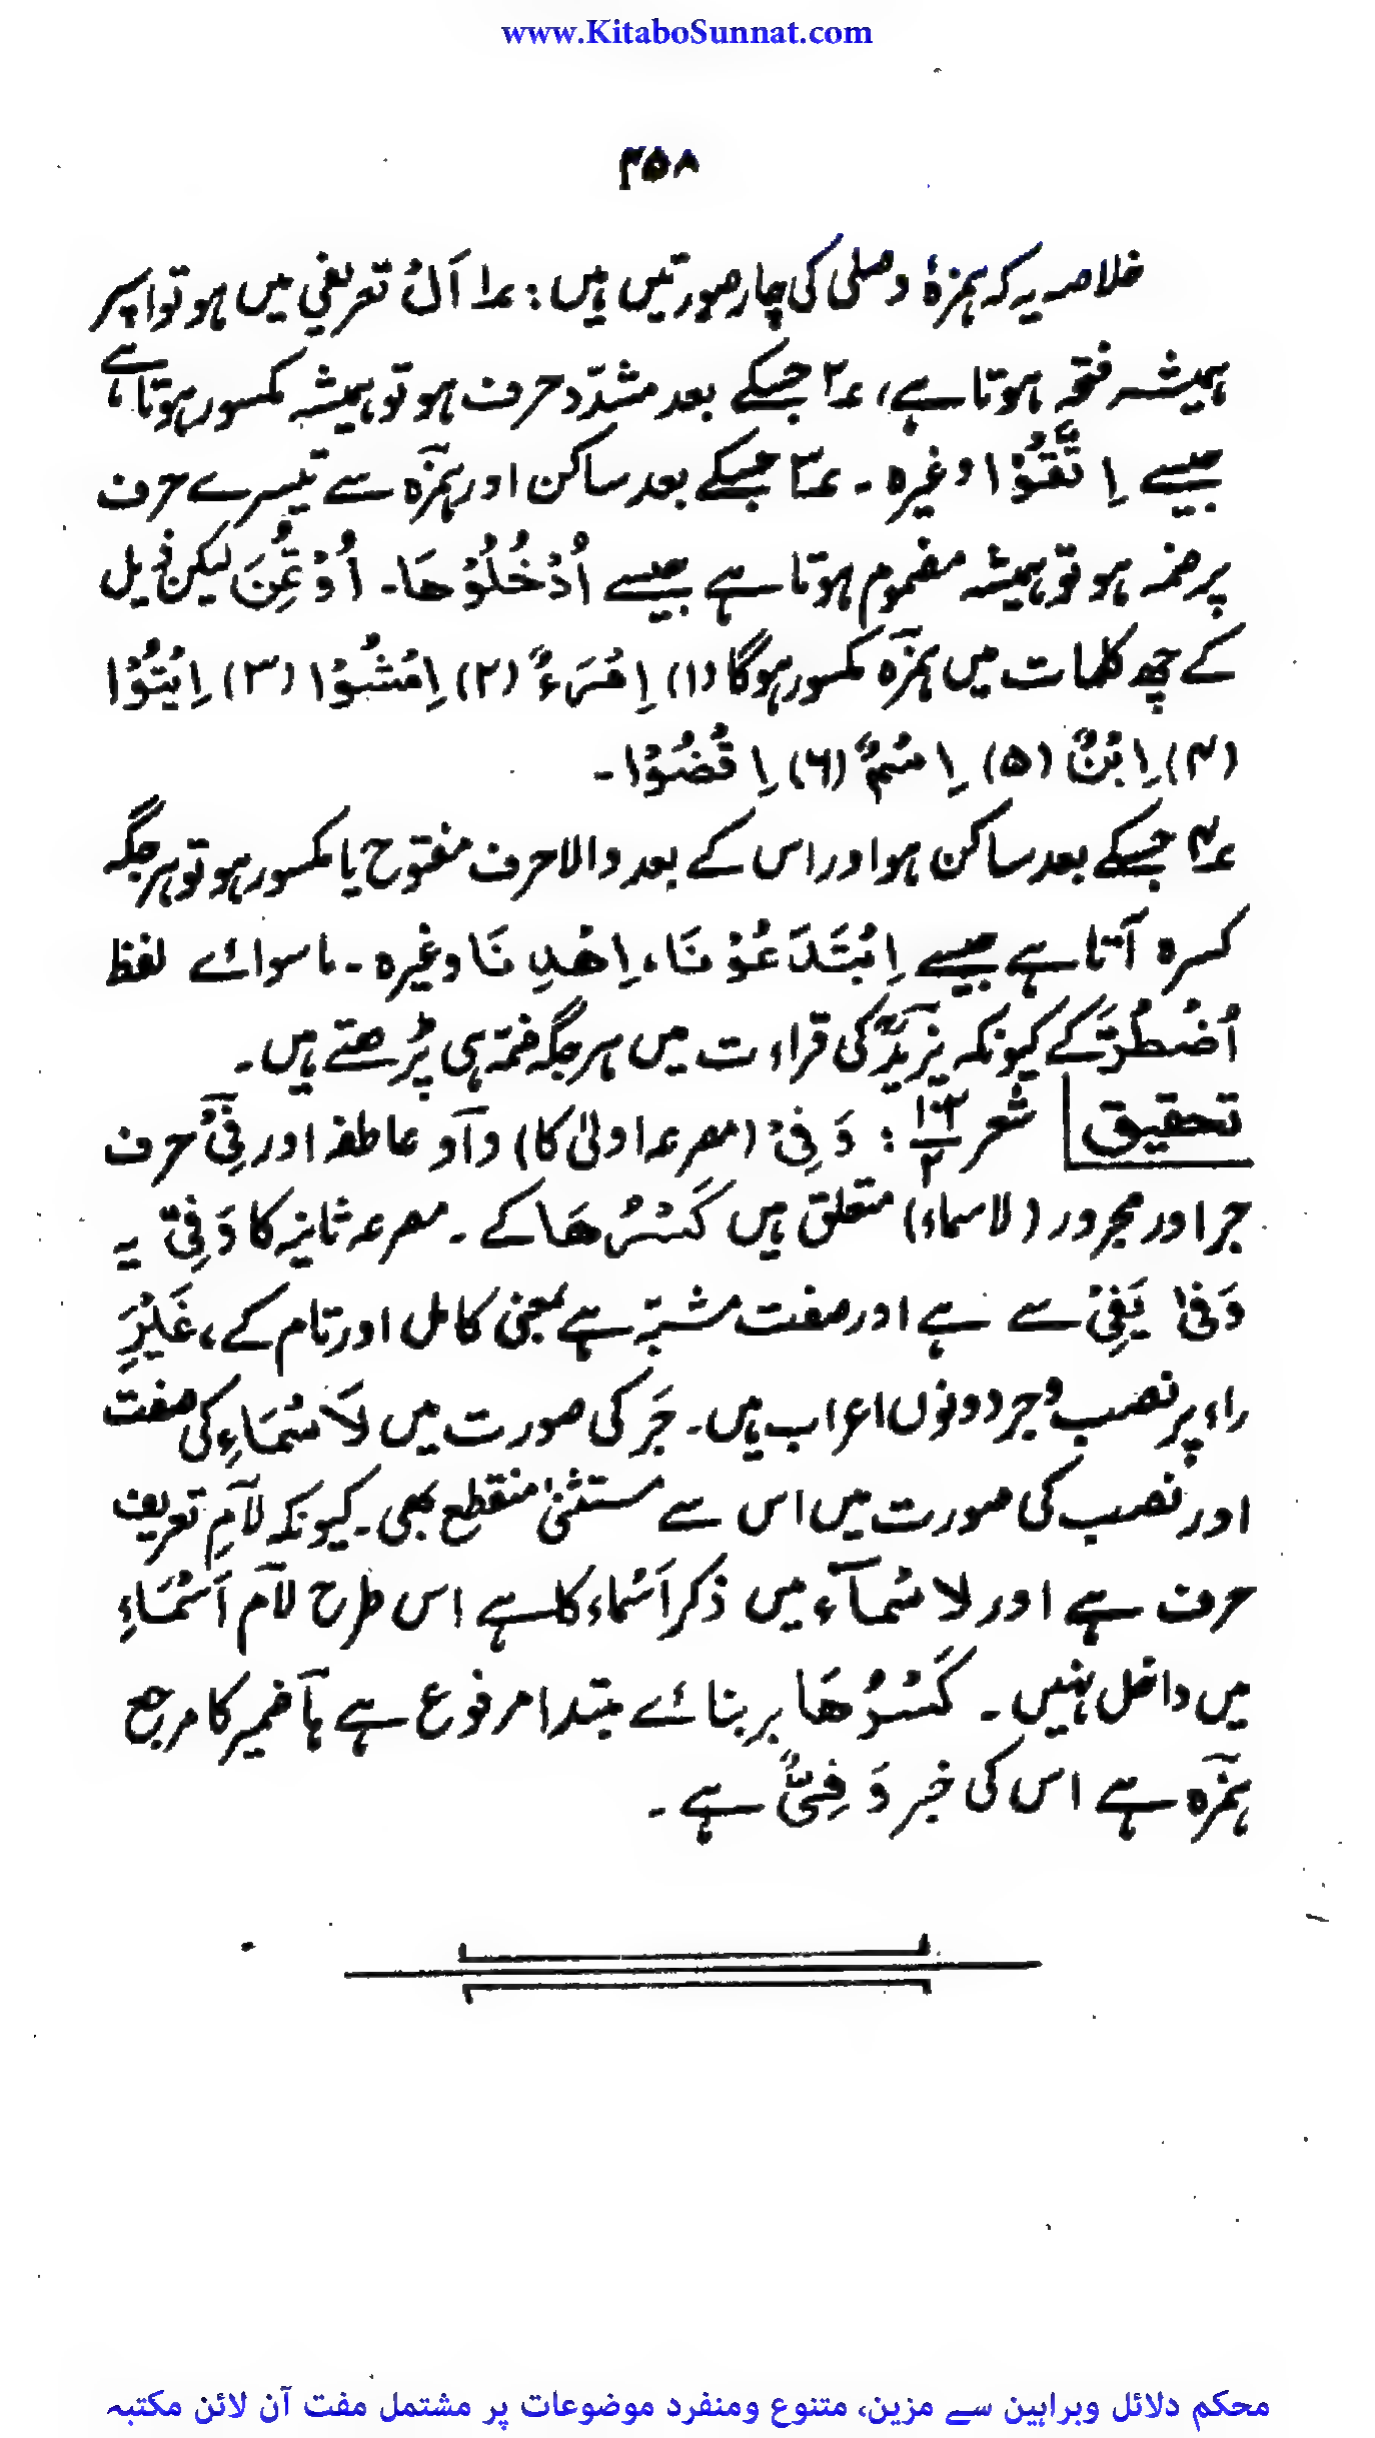 www.KitaboSunnat.com
۴۵۸
خلاصہ یہ کہ ہمزۂ وصلی کی چار صورتیں ہیں: ۱؎ اَلْ تعریفی میں ہو تو اس پر
ہمیشہ فتحہ ہوتا ہے، ۲؎ جسکے بعد مشدّد حرف ہو تو ہمیشہ مکسور ہوتا ہے
جیسے اِتَّقُوْا وغیرہ۔ ۳؎ جسکے بعد ساکن اور ہمزہ سے تیسرے حرف
پر ضمہ ہو تو ہمیشہ مضموم ہوتا ہے جیسے اُدْخُلُوْھَا۔ اُوْتُمِنَ لیکن ذیل
کے چھ کلمات میں ہمزہ مکسور ہوگا (۱) اِمْرَءٌ (۲) اِمْشُوْا (۳) اِیْتُوْا
(۴) اِبْنٌ (۵) اِسْمٌ (۶) اِقْضُوْا۔
۴؎ جسکے بعد ساکن ہو اور اس کے بعد والا حرف مفتوح یا مکسور ہو تو ہر جگہ
کسرہ آتا ہے جیسے اِبْتَدَعُوْنَا، اِھْدِنَا وغیرہ۔ ماسوائے لفظ
اُضْطُرَّ کے کیونکہ یزیدؒ کی قراءت میں ہر جگہ ضمّہ ہی پڑھتے ہیں۔
تحقیق شعر ۱۰۲/۲ : وَفِیْ (مصرعہ اولیٰ کا) واو عاطفہ اور فِیْ حرف
جر اور مجرور (لاسماء) متعلق ہیں کَسْرُھَا کے۔ مصرعہ ثانیہ کا وَفِیّ یہ
وَفیٰ یَفِیْ سے ہے اور صفت مشبّہ ہے بمعنی کامل اور تام کے، غَیْرَِ
راء پر نصب و جر دونوں اعراب ہیں۔ جَر کی صورت میں لَاسْمَاءِ کی صفت
اور نصب کی صورت میں اس سے مستثنیٰ منقطع بھی۔ کیونکہ لامِ تعریف
حرف ہے اور لاسْمآء میں ذکر اَسْماء کا ہے اس طرح لام اَسْمَاءِ
میں داخل نہیں۔ کَسْرُھَا بربنائے مبتدا مرفوع ہے ہا ضمیر کا مرجع
ہمزہ ہے اس کی خبر وَفِیٌّ ہے۔
محکم دلائل وبراہین سے مزین، متنوع ومنفرد موضوعات پر مشتمل مفت آن لائن مکتبہ